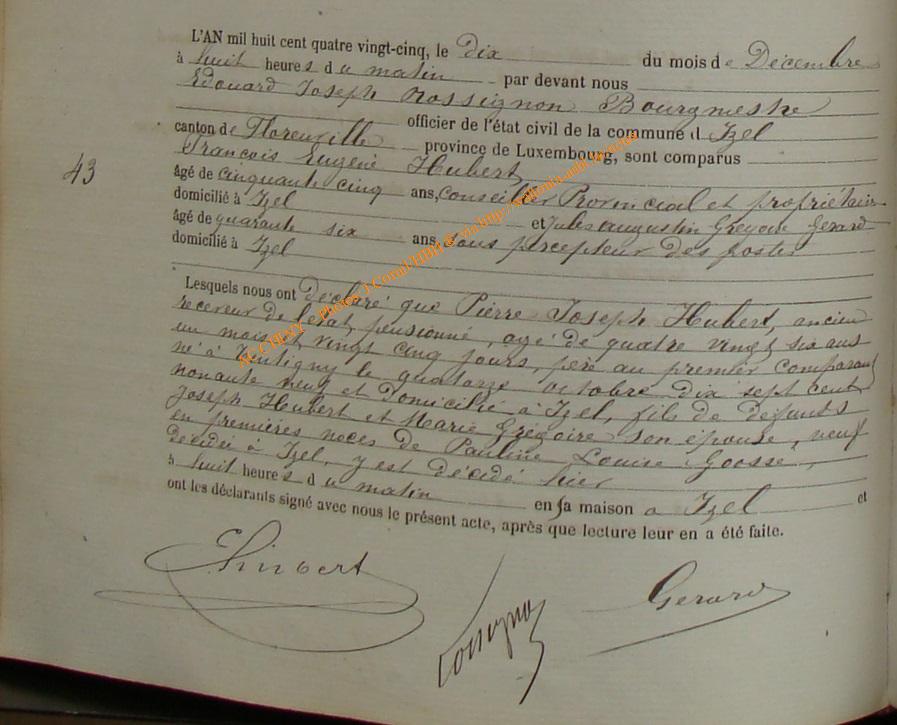 L'AN mil huit cent quatre vingt-cinq, le dix du mois de Décembre
à huit heures du matin par devant nous
Edouard Joseph Rossignon Bourgmestre
officier de l'état civil de la commune d Izel
canton de Florenville province de Luxembourg, sont comparus
François Eugène Hubert
43
âgé de cinquante cinq ans, conseiller Provincial et propriétaire
domicilié à Izel et Jules augustin Grégoire Gerard
âgé de quarante six ans, sous percepteur des postes
domicilié à Izel
Lesquels nous ont déclaré que Pierre Joseph Hubert, ancien
receveur de l'état pensionné, agé de quatre vingt six ans
un mois et vingt cinq jours, père au premier comparant
né à Tintigny le quatorze octobre dix sept cent
nonante neuf et domicilié à Izel, fils de défunts
Joseph Hubert et Marie Grégoire son épouse, veuf
en premières noces de Pauline Louise Goosse,
décédée à Izel, y est décédé hier
à huit heures du matin en sa maison à Izel et
ont les déclarants signé avec nous le présent acte, après que lecture leur en a été faite.
EHubert
Rossignon
Gerard